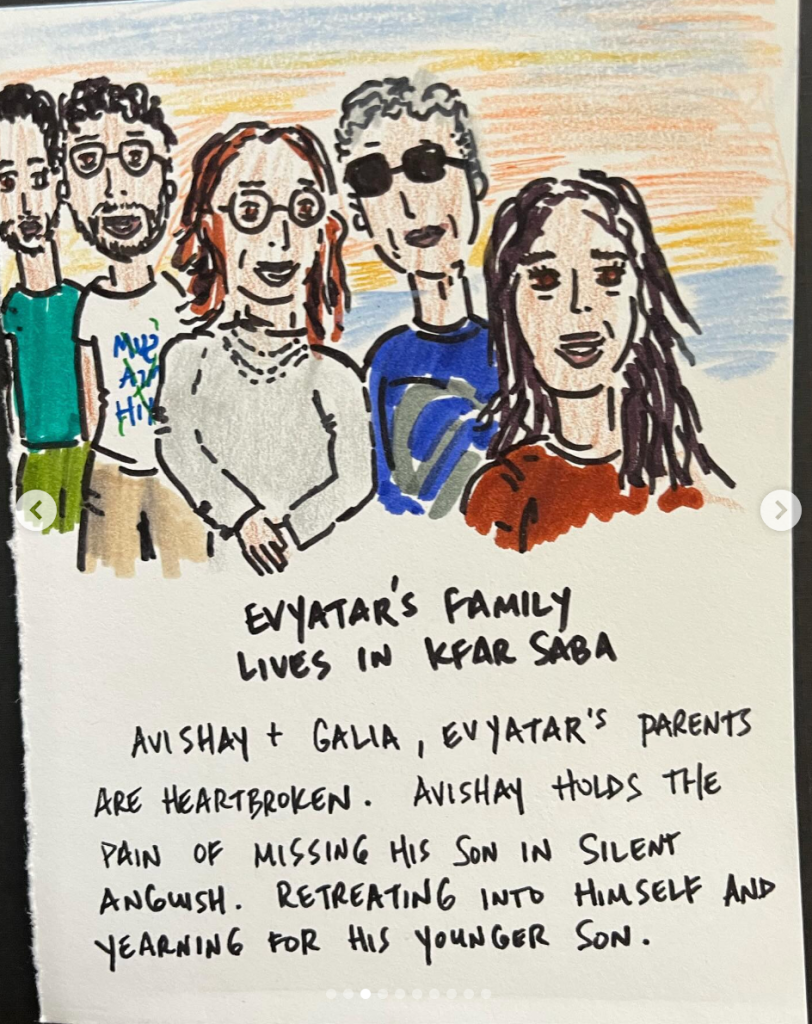 EVYATAR'S FAMILY
LIVES IN KFAR SABA
AVISHAY + GALIA, EVYATAR'S PARENTS
ARE HEARTBROKEN. AVISHAY HOLDS THE
PAIN OF MISSING HIS SON IN SILENT
ANGUISH. RETREATING INTO HIMSELF AND
YEARNING FOR HIS YOUNGER SON.